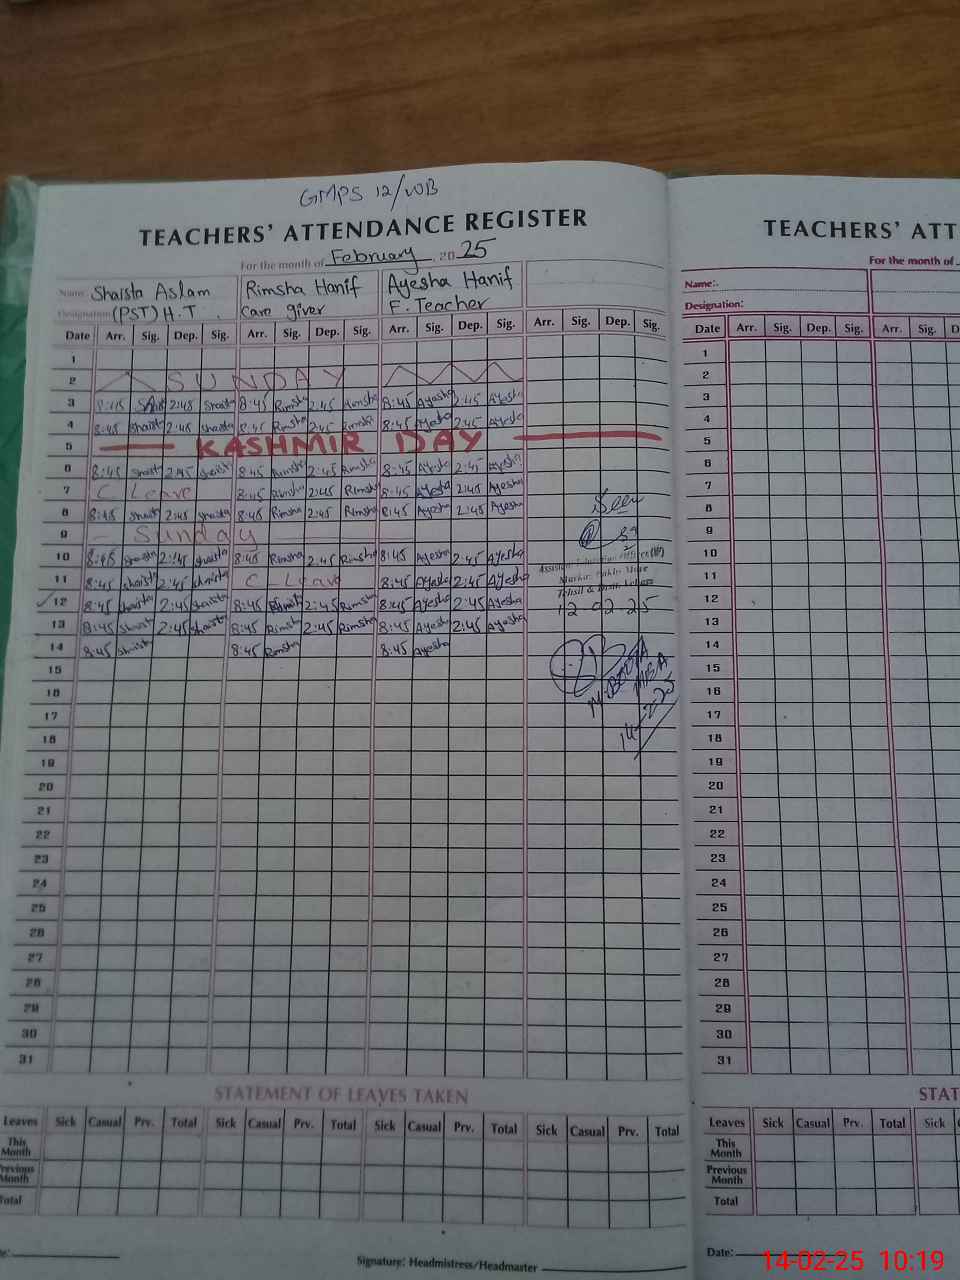 GMPS 12/WB
TEACHERS' ATTENDANCE REGISTER
For the month of February, 2025
Name: Shaista Aslam Rimsha Hanif Ayesha Hanif
Designation: (PST) H.T Care giver F. Teacher
Date Arr. Sig. Dep. Sig. Arr. Sig. Dep. Sig. Arr. Sig. Dep. Sig. Arr. Sig. Dep. Sig.
1
2 SUNDAY
3 8:45 2:45 Shaista 8:45 Rimsha 2:45 Rimsha 8:45 Ayesha 2:45 Ayesha
4 8:45 Shaista 2:45 Shaista 8:45 Rimsha 2:45 Rimsha 8:45 Ayesha 2:45 Ayesha
5 KASHMIR DAY
6 8:45 Shaista 2:45 Shaista 8:45 Rimsha 2:45 Rimsha 8:45 Ayesha 2:45 Ayesha
7 C Leave 8:45 Rimsha 2:45 Rimsha 8:45 Ayesha 2:45 Ayesha
8 8:45 Shaista 2:45 Shaista 8:45 Rimsha 2:45 Rimsha 8:45 Ayesha 2:45 Ayesha
Seen
9 - Sunday
10 8:45 Shaista 2:45 Shaista 8:45 Rimsha 2:45 Rimsha 8:45 Ayesha 2:45 Ayesha
11 8:45 Shaista 2:45 Shaista C-Leave 8:45 Ayesha 2:45 Ayesha
12 8:45 Shaista 2:45 Shaista 8:45 Rimsha 2:45 Rimsha 8:45 Ayesha 2:45 Ayesha
12-02-25
13 8:45 Shaista 2:45 Shaista 8:45 Rimsha 2:45 Rimsha 8:45 Ayesha 2:45 Ayesha
14 8:45 Shaista 8:45 Rimsha 8:45 Ayesha
15
MEA
16
14-2-25
17
18
19
20
21
22
23
24
25
26
27
28
29
30
31
STATEMENT OF LEAVES TAKEN
Leaves Sick Casual Prv. Total Sick Casual Prv. Total Sick Casual Prv. Total Sick Casual Prv. Total
This Month
Previous Month
Total
Signature: Headmistress/Headmaster
TEACHERS' ATT
For the month of
Name:.
Designation:
Date Arr. Sig. Dep. Sig. Arr. Sig. D
1
2
3
4
5
6
7
8
9
10
11
12
13
14
15
16
17
18
19
20
21
22
23
24
25
26
27
28
29
30
31
STAT
Leaves Sick Casual Prv. Total Sick
This Month
Previous Month
Total
Date:
14-02-25 10:19